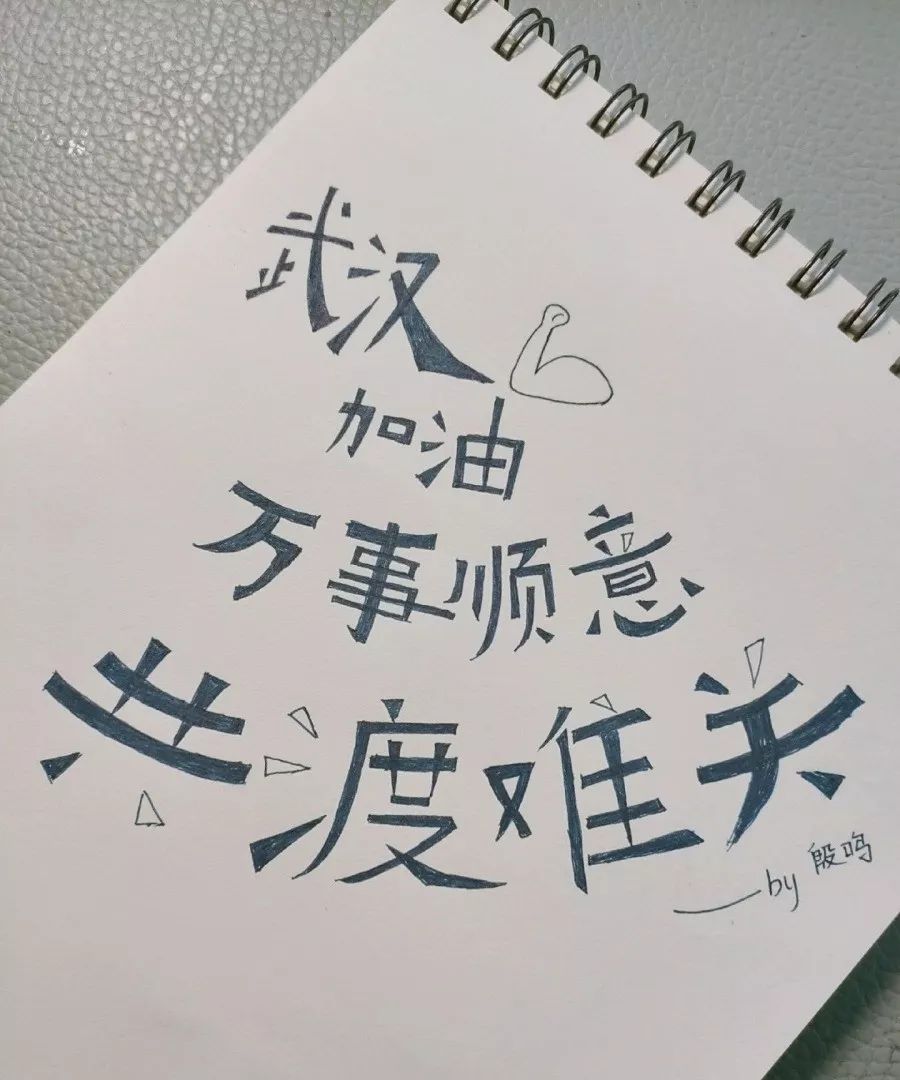 武汉
加油
万事顺意
共渡难关
——by 殷鸣